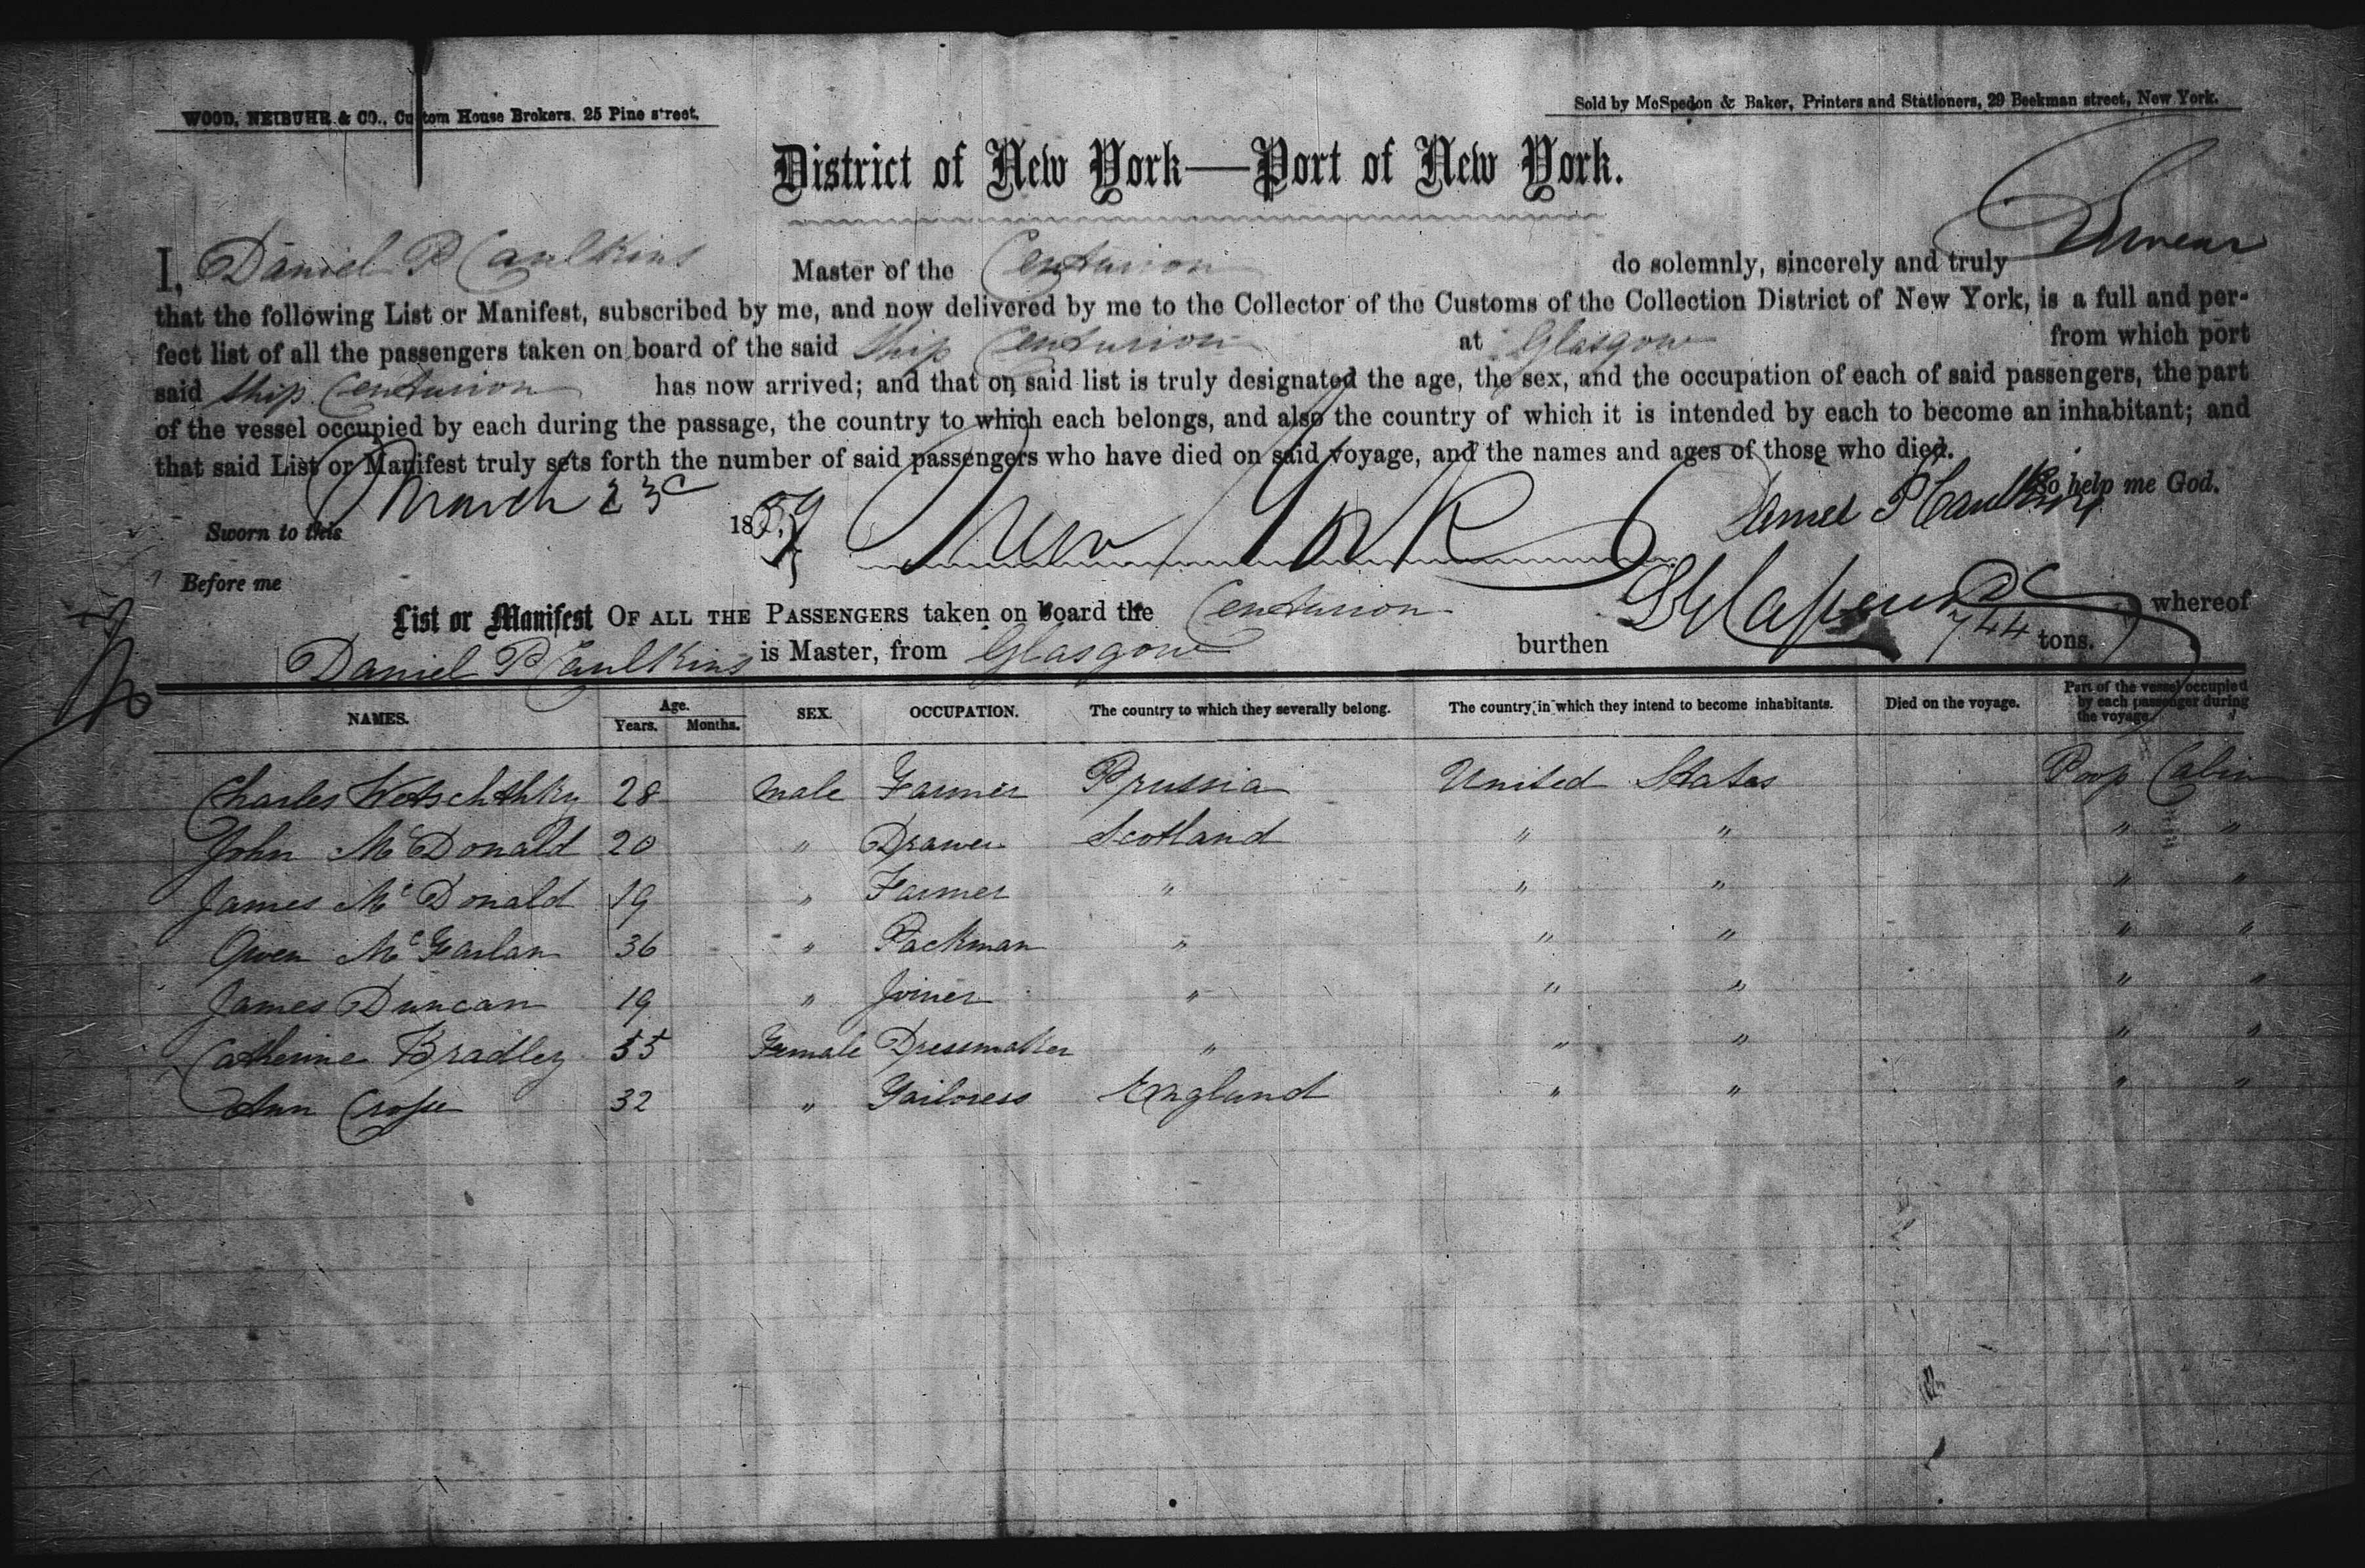 WOOD, NEIBUHR & CO., Custom House Brokers. 25 Pine street.
Sold by McSpedon & Baker, Printers and Stationers, 29 Beekman street, New York.
District of New York—Port of New York.
I, Daniel P Caulkins Master of the Centurion do solemnly, sincerely and truly Swear
that the following List or Manifest, subscribed by me, and now delivered by me to the Collector of the Customs of the Collection District of New York, is a full and per-
fect list of all the passengers taken on board of the said ship Centurion at Glasgow from which port
said ship Centurion has now arrived; and that on said list is truly designated the age, the sex, and the occupation of each of said passengers, the part
of the vessel occupied by each during the passage, the country to which each belongs, and also the country of which it is intended by each to become an inhabitant; and
that said List or Manifest truly sets forth the number of said passengers who have died on said voyage, and the names and ages of those who died.
So help me God.
Sworn to this March 23d 1859 New York Daniel P Caulkins
Before me
List or Manifest OF ALL THE PASSENGERS taken on board the Centurion whereof
Daniel P Caulkins is Master, from Glasgow burthen 744 tons.
NAMES. Age. Years. Months. SEX. OCCUPATION. The country to which they severally belong. The country in which they intend to become inhabitants. Died on the voyage. Part of the vessel occupied by each passenger during the voyage.
Charles 28 Male Farmer Prussia United States Poop Cabin
John McDonald 20 " Drawer Scotland " " " "
James McDonald 19 " Farmer " " " " "
Owen McFarlan 36 " Packman " " " " "
James Duncan 19 " Joiner " " " " "
Catherine Bradley 55 Female Dressmaker " " " " "
Ann 32 " Tailoress England " " " "